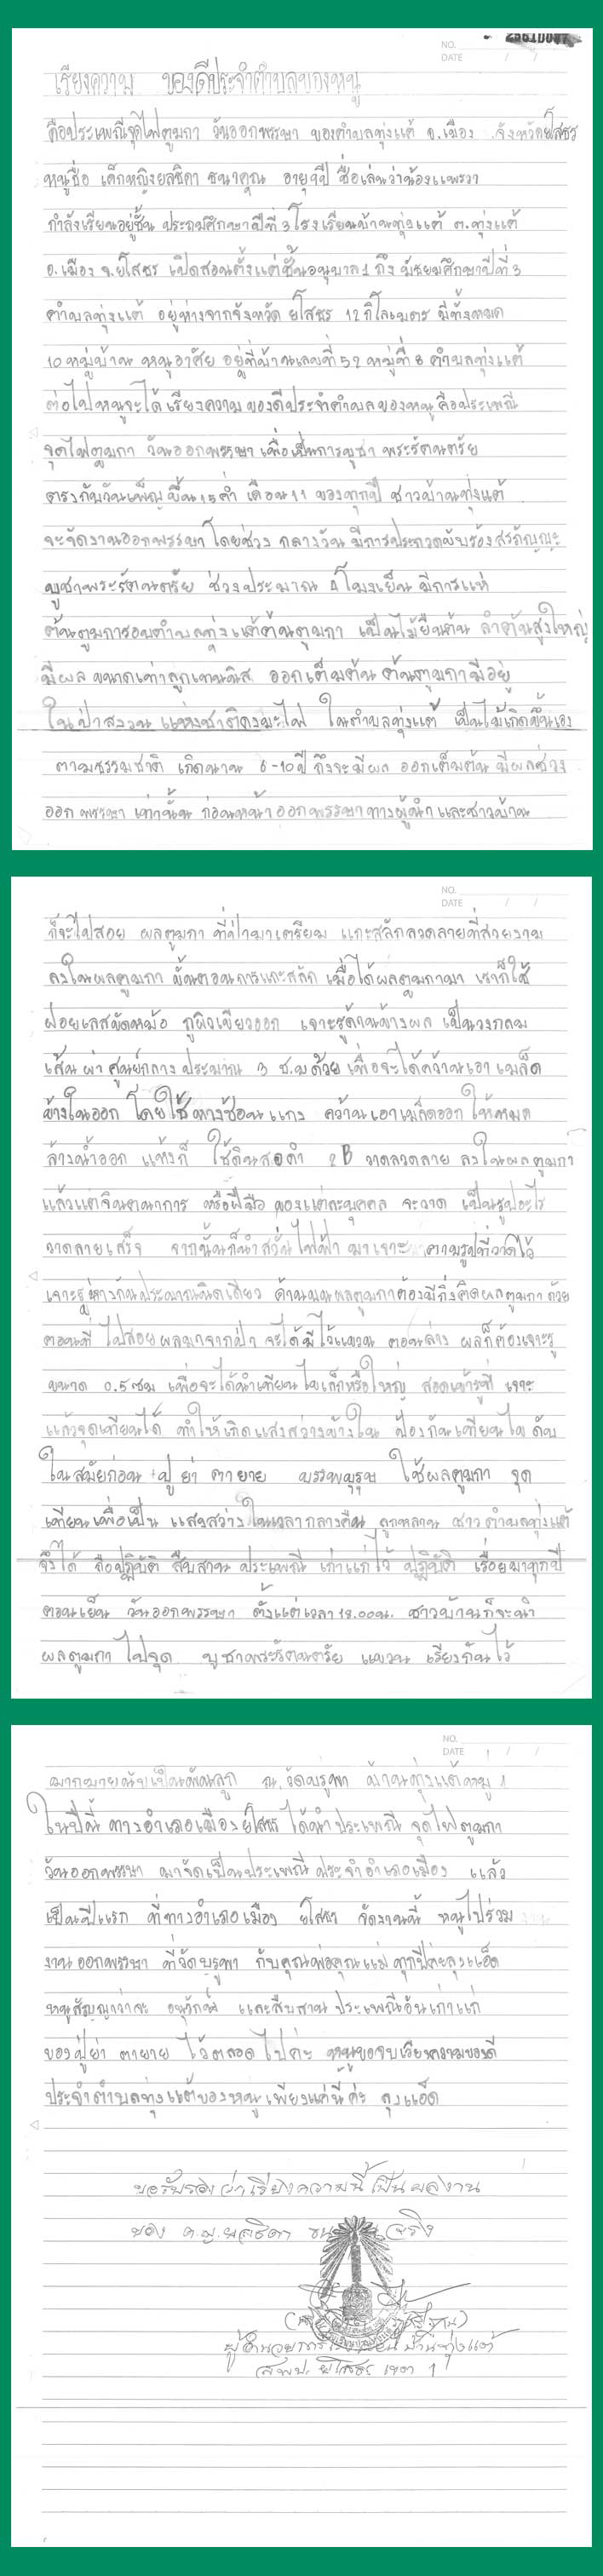 NO.
DATE / /
เรียงความ ของดีประจำตำบลของหนู
คือประเพณีจุดไฟตูมกา วันออกพรรษา ของตำบลทุ่งแต้ อ.เมือง จังหวัดยโสธร
หนูชื่อ เด็กหญิงยลธิดา ชนาคุณ อายุ 9 ปี ชื่อเล่นว่าน้องแพรวา
กำลังเรียนอยู่ชั้น ประถมศึกษาปีที่ 3 โรงเรียนบ้านทุ่งแต้ ต.ทุ่งแต้
อ.เมือง จ.ยโสธร เปิดสอนตั้งแต่ชั้นอนุบาล 1 ถึง มัธยมศึกษาปีที่ 3
ตำบลทุ่งแต้ อยู่ห่างจากจังหวัด ยโสธร 12 กิโลเมตร มีทั้งหมด
10 หมู่บ้าน หนูอาศัย อยู่ที่บ้านเลขที่ 52 หมู่ที่ 8 ตำบลทุ่งแต้
ต่อไปหนูจะได้ เรียงความ ของดีประจำตำบลของหนู คือประเพณี
จุดไฟตูมกา วันออกพรรษา เพื่อเป็นการบูชา พระรัตนตรัย
ตรงกับวันเพ็ญ ขึ้น 15 ค่ำ เดือน 11 ของทุกปี ชาวบ้านทุ่งแต้
จะจัดงานออกพรรษา โดยช่วง กลางวัน มีการประกวดขับร้องสรภัญญะ
บูชาพระรัตนตรัย ช่วงประมาณ 4 โมงเย็น มีการแห่
ต้นตูมการอบตำบลทุ่งแต้ต้นตูมกา เป็นไม้ยืนต้น ลำต้นสูงใหญ่
มีผล ขนาดเท่าลูกเทนนิส ออกเต็มต้น ต้นตูมกามีอยู่
ในป่าสงวน แห่งชาติดงมะไฟ ในตำบลทุ่งแต้ เป็นไม้เกิดขึ้นเอง
ตามธรรมชาติ เกิดนาน 6-10 ปี ถึงจะมีผล ออกเต็มต้น มีผลช่วง
ออก พรรษา เท่านั้น ก่อนหน้า ออกพรรษาทางผู้นำ และชาวบ้าน
NO.
DATE / /
ก็จะไปสอย ผลตูมกา ที่ป่ามาเตรียม แกะสลักลวดลายที่สวยงาม
ลงในผลตูมกา ขั้นตอนการแกะสลัก เมื่อได้ผลตูมกามา เราก็ใช้
ฝอยเลสขัดหม้อ ถูผิวเขียวออก เจาะรูด้านข้างผล เป็นวงกลม
เส้น ผ่า ศูนย์กลาง ประมาณ 3 ซ.ม ด้วย เพื่อจะได้คว้านเอา เมล็ด
ข้างในออก โดยใช้ ทางช้อน แกง คว้านเอาเมล็ดออก ให้หมด
ล้างน้ำออก แห้งก็ ใช้ดินสอดำ 2B วาดลวดลาย ลงในผลตูมกา
แล้วแต่จินตนาการ หรือฝีมือ ของแต่ละบุคคล จะวาด เป็นรูปอะไร
วาดลายเสร็จ จากนั้นก็นำสว่าน ไฟฟ้า มาเจาะ ตามรูปที่วาดไว้
เจาะรูห่างกันประมาณนิดเดียว ด้านบนผลตูมกาต้องมีกิ่งติดผลตูมกา ด้วย
ตอนที่ ไปสอยผลมาจากป่า จะได้มีไว้แขวน ตอนล่าง ผลก็ต้องเจาะรู
ขนาด 0.5 ซม เพื่อจะได้นำเทียนไขเล็กหรือใหญ่ สอดเข้ารูที่ เจาะ
แล้วจุดเทียนได้ ทำให้เกิดแสงสว่างข้างใน ป้องกันเทียนไข ดับ
ในสมัยก่อน ปู่ ย่า ตา ยาย บรรพบุรุษ ใช้ผลตูมกา จุด
เทียนเพื่อเป็น แสงสว่าง ในเวลากลางคืน ลูกหลาน ชาวตำบลทุ่งแต้
จึงได้ ถือปฏิบัติ สืบสาน ประเพณี เก่าแก่ไว้ ปฏิบัติ เรื่อยมาทุกปี
ตอนเย็น วันออกพรรษา ตั้งแต่เวลา 18.00น. ชาวบ้านก็จะนำ
ผลตูมกา ไปจุด บูชาพระรัตนตรัย แขวน เรียงกันไว้
NO.
DATE / /
มากมายนับเป็นพันลูก ณ วัดบูรพา บ้านทุ่งแต้ หมู่ 1
ในปีนี้ ทางอำเภอเมืองยโสธร ได้นำ ประเพณี จุดไฟตูมกา
วันออกพรรษา มาจัดเป็นประเพณี ประจำอำเภอเมือง แล้ว
เป็นปีแรก ที่ทางอำเภอเมือง ยโสธร จัดงานนี้ หนูไปร่วม
งาน ออกพรรษา ที่วัดบูรพา กับคุณพ่อคุณแม่ ทุกปีค่ะลุงแอ็ด
หนูสัญญาว่าจะ อนุรักษ์ และสืบสาน ประเพณีอันเก่าแก่
ของปู่ย่า ตายาย ไว้ตลอดไปค่ะ หนูขอจบเรียงความของดี
ประจำตำบลทุ่งแต้ของหนูเพียงแค่นี้ค่ะ ลุงแอ็ด
ขอรับรองว่าเรียงความนี้เป็นผลงาน
ของ ด.ญ.ยลธิดา จริง
ผู้อำนวยการ บ้านทุ่งแต้
สพป. ยโสธร เขต 1